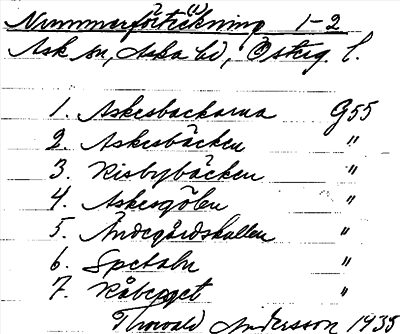 Nummerförteckning 1-2
Ask sn, Aska hd, Österg. l.
1. Askesbackarna G55
2. Askesbäcken "
3. Risbybäcken "
4. Askesgölen "
5. Ändegårdskullen "
6. Spetaln "
7. Råberget "
Thorvald Andersson 1935